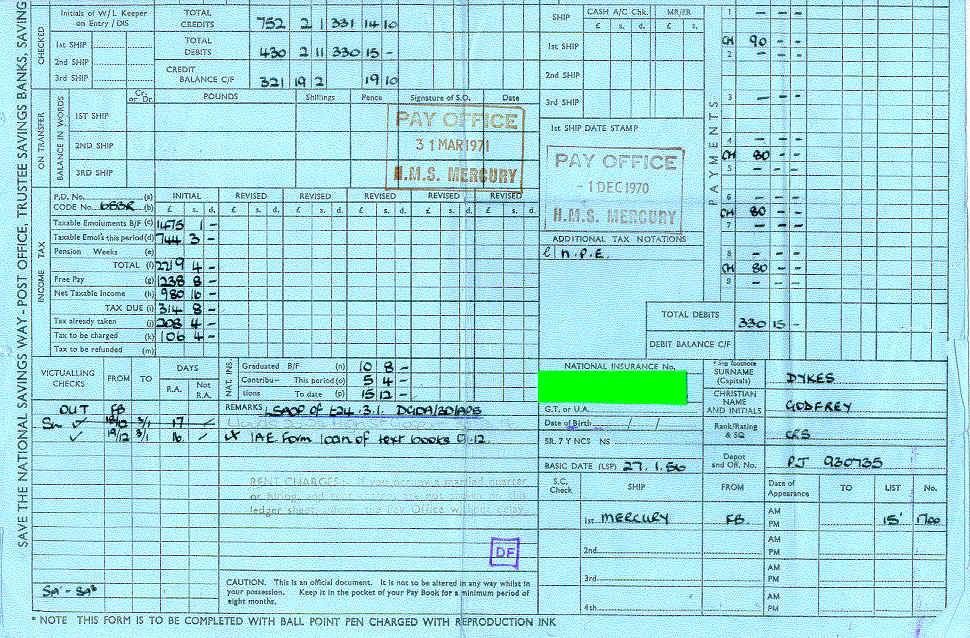 SAVE THE NATIONAL SAVINGS WAY - POST OFFICE, TRUSTEE SAVINGS BANKS, SAVING
CHECKED
Initials of W/L Keeper on Entry / DIS
1st SHIP
2nd SHIP
3rd SHIP
TOTAL CREDITS 752 2 1 331 14 10
TOTAL DEBITS 430 2 11 330 15 -
CREDIT BALANCE C/F 321 19 2 19 10
ON TRANSFER
BALANCE IN WORDS
Cr. or Dr. POUNDS Shillings Pence Signature of S.O. Date
1ST SHIP
2ND SHIP
3RD SHIP
PAY OFFICE
31 MAR 1971
H.M.S. MERCURY
SHIP CASH A/C Chk. MR/FR
£ s. d. £ s.
1st SHIP
2nd SHIP
3rd SHIP
1st SHIP DATE STAMP
PAY OFFICE
- 1 DEC 1970
H.M.S. MERCURY
ADDITIONAL TAX NOTATIONS
N.P.E.
PAYMENTS
1 - - -
CH 90 - -
2 - - -
3 - - -
4 - - -
CH 80 - -
5 - - -
6 - - -
CH 80 - -
7 - - -
8 - - -
CH 80 - -
9
TOTAL DEBITS 330 15 -
DEBIT BALANCE C/F
INCOME TAX
P.D. No. (a) INITIAL REVISED REVISED REVISED REVISED REVISED
CODE No. (b) £ s. d. £ s. d. £ s. d. £ s. d. £ s. d. £ s. d.
Taxable Emoluments B/F (c) 1475 1 -
Taxable Emol's this period (d) 744 3 -
Pension Weeks (e)
TOTAL (f) 2219 4 -
Free Pay (g) 1238 8 -
Net Taxable Income (h) 980 16 -
TAX DUE (i) 314 8 -
Tax already taken (j) 208 4 -
Tax to be charged (k) 106 4 -
Tax to be refunded (m)
VICTUALLING CHECKS FROM TO DAYS
R.A. Not R.A.
OUT FB
3/1 17
19/12 3/1 16
NAT. INS.
Graduated B/F (n) 10 8 -
Contribu- This period (o) 5 4 -
tions To date (p) 15 12 -
REMARKS
IAE Form loan of text books 9.12.
RENT CHARGES married quarter
or hiring
ledger sheet, Pay Office without delay.
DF
CAUTION. This is an official document. It is not to be altered in any way whilst in
your possession. Keep it in the pocket of your Pay Book for a minimum period of
eight months.
NATIONAL INSURANCE No.
G.T. or U.A.
Date of Birth / /
SR. 7 Y NCS NS
BASIC DATE (LSP) 27.1.56
SURNAME (Capitals) DYKES
CHRISTIAN NAME AND INITIALS GODFREY
Rank/Rating & SQ CRS
Depot and Off. No. PJ 930735
S.C. Check SHIP FROM Date of Appearance TO LIST No.
1st MERCURY FB AM PM 15' 1700
2nd AM PM
3rd AM PM
4th AM PM
* NOTE THIS FORM IS TO BE COMPLETED WITH BALL POINT PEN CHARGED WITH REPRODUCTION INK